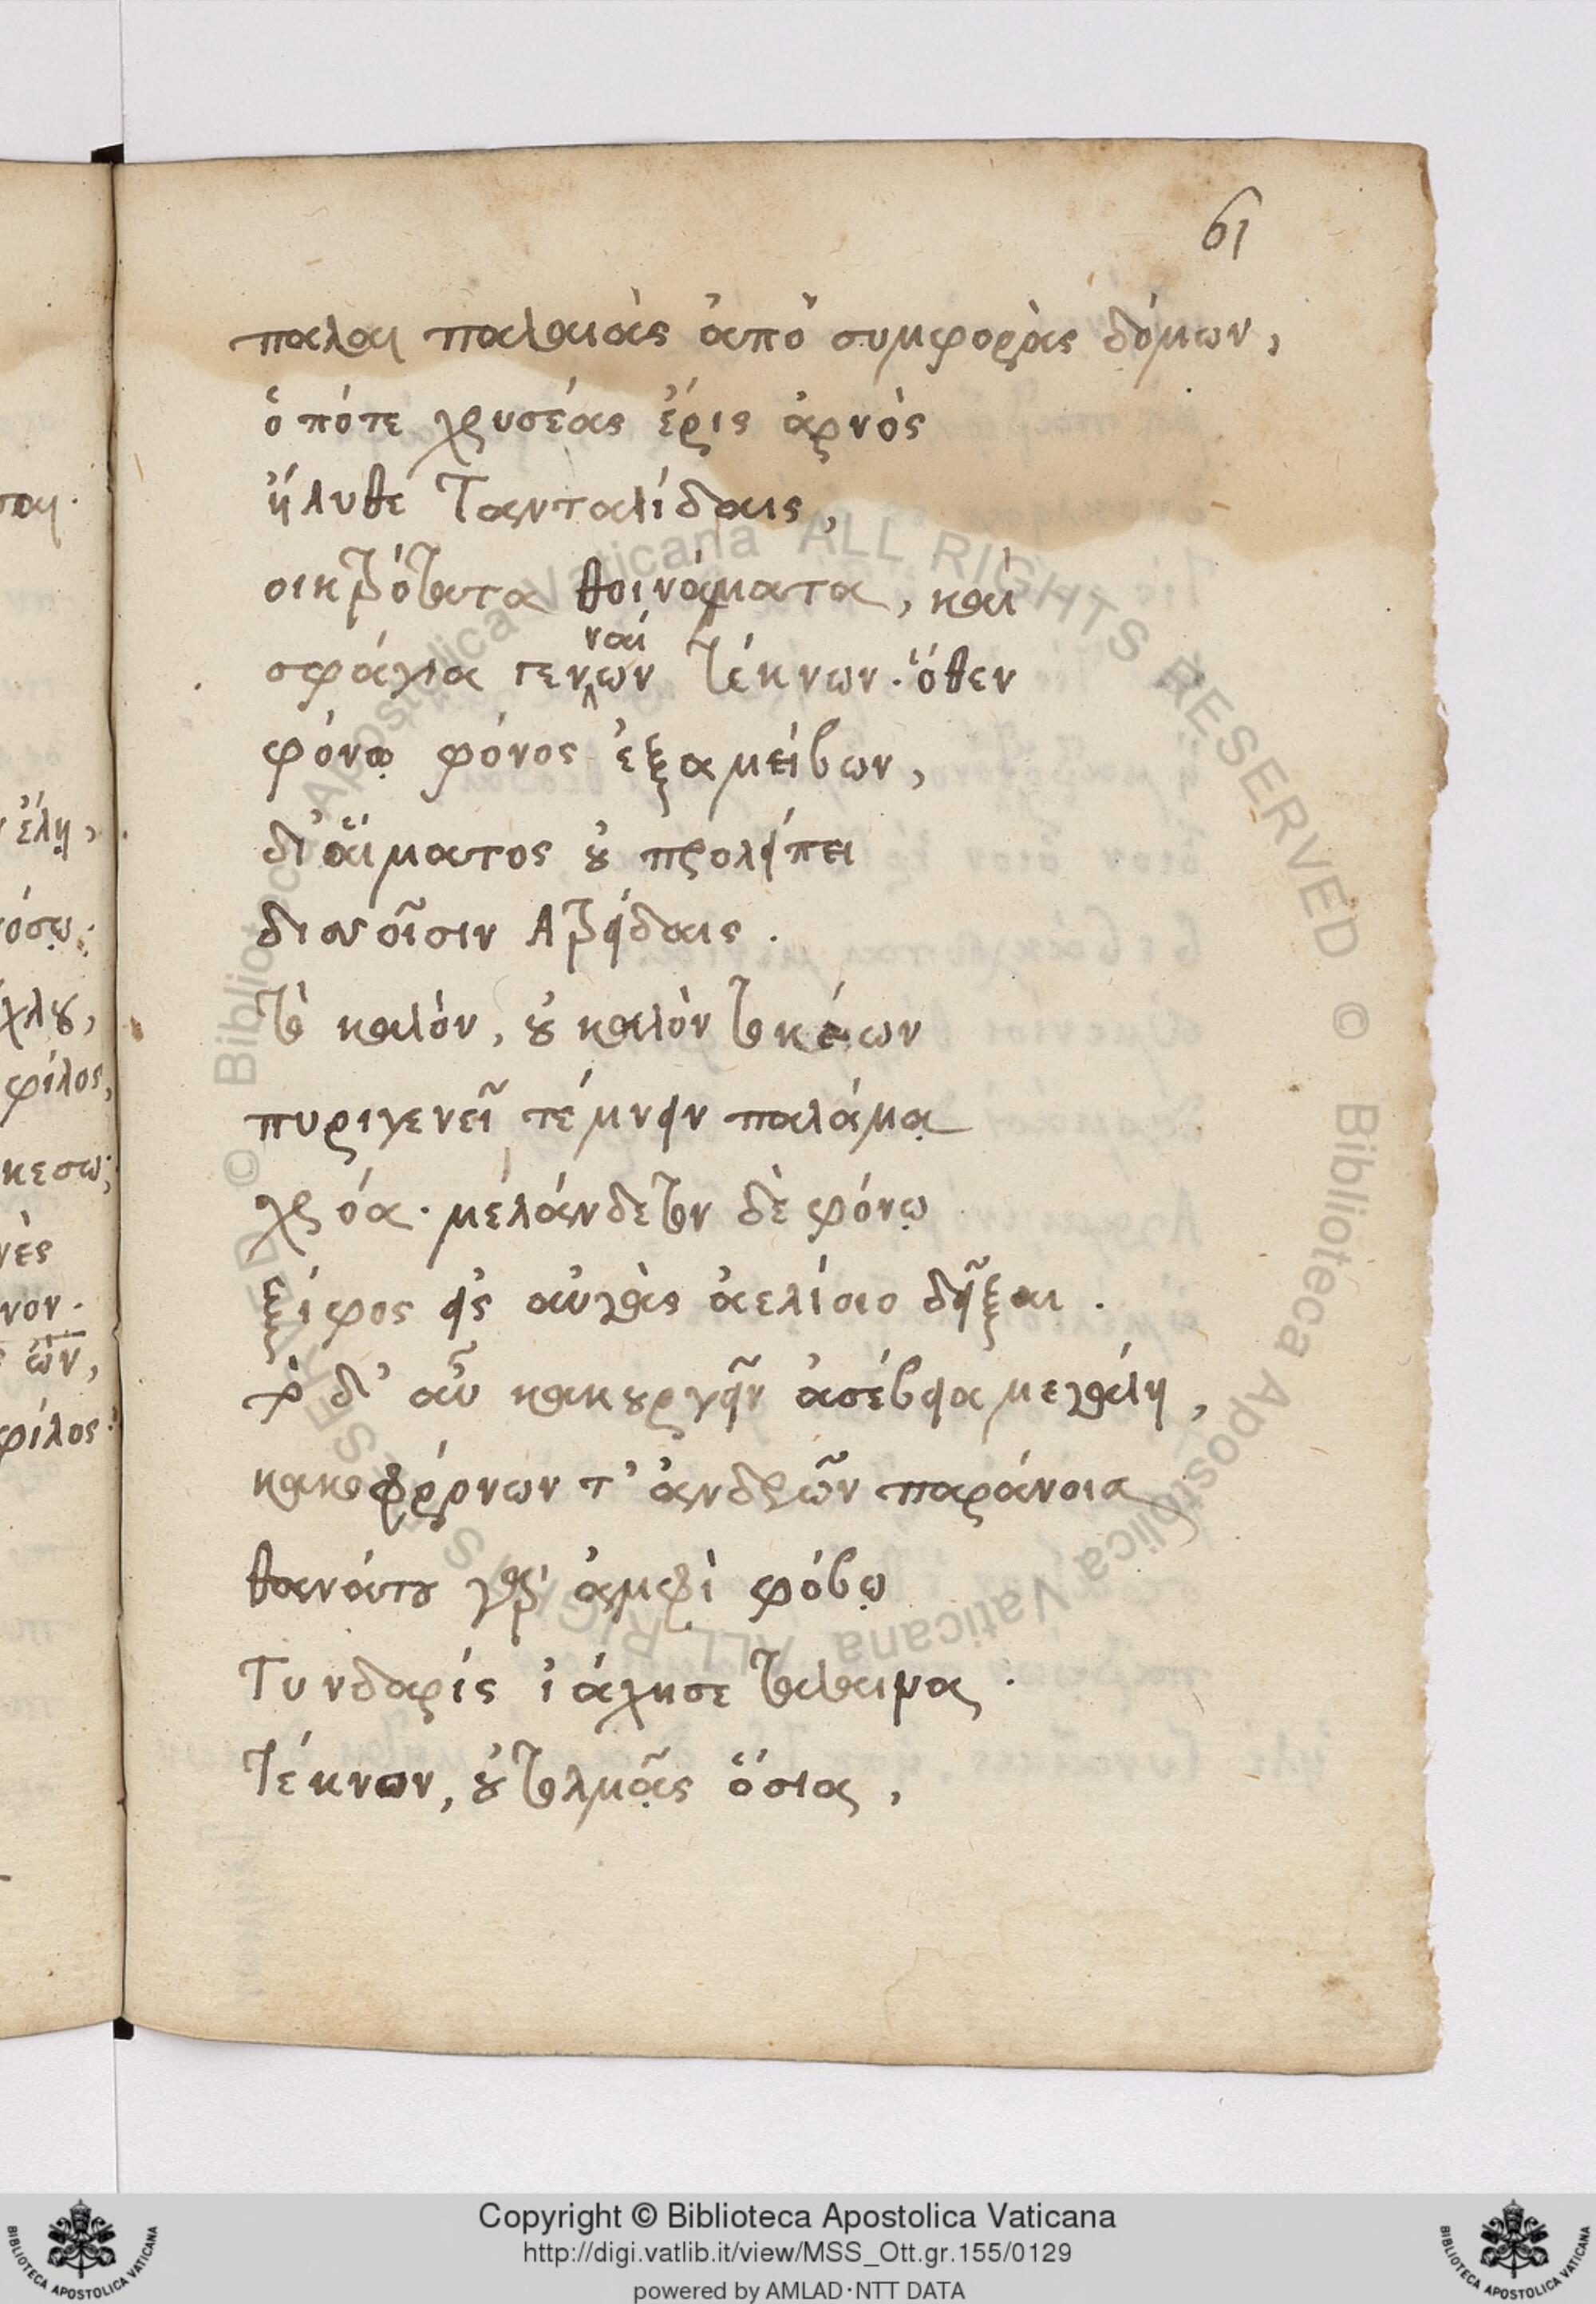 61
παλαι παλαιὰς ἀπὸ συμφορὰς δόμων,
ὁπότε χρυσέας ἔρις ἀρνὸς
ἤλυθε Τανταλίδαις,
οικτρότατα θοινάματα, καὶ
σφάγια γενναίων τέκνων· ὅθεν
φόνῳ φόνος ἐξαμείβων,
δι' αἵματος οὐ προλείπει
δισσοῖσιν Ατρείδαις.
τὸ καλὸν, οὐ καλὸν τοκέων
πυριγενεῖ τέμνειν παλάμᾳ
χρόα· μελάνδετον δὲ φόνῳ
ξίφος εἰς αὐγὰς ἀελίοιο δεῖξαι.
τὸ δ' αὖ κακουργεῖν ἀσέβεια μεγάλη,
κακοφρόνων τ' ἀνδρῶν παράνοια
θανάτου γὰρ ἀμφὶ φόβῳ
Τυνδαρίς ἰάχησε τάλαινα·
τέκνον, οὐ τολμᾷς ὅσια,
σαι.
έλῃ,
όσῳ·
χλου,
φίλος,
κεσω;
νὲς
νον.
ὤν,
φίλος·
© Biblioteca Apostolica Vaticana ALL RIGHTS RESERVED © Biblioteca Apostolica Vaticana ALL RIGHTS RESERVED
Copyright © Biblioteca Apostolica Vaticana
http://digi.vatlib.it/view/MSS_Ott.gr.155/0129
powered by AMLAD·NTT DATA
BIBLIOTECA APOSTOLICA VATICANA
BIBLIOTECA APOSTOLICA VATICANA